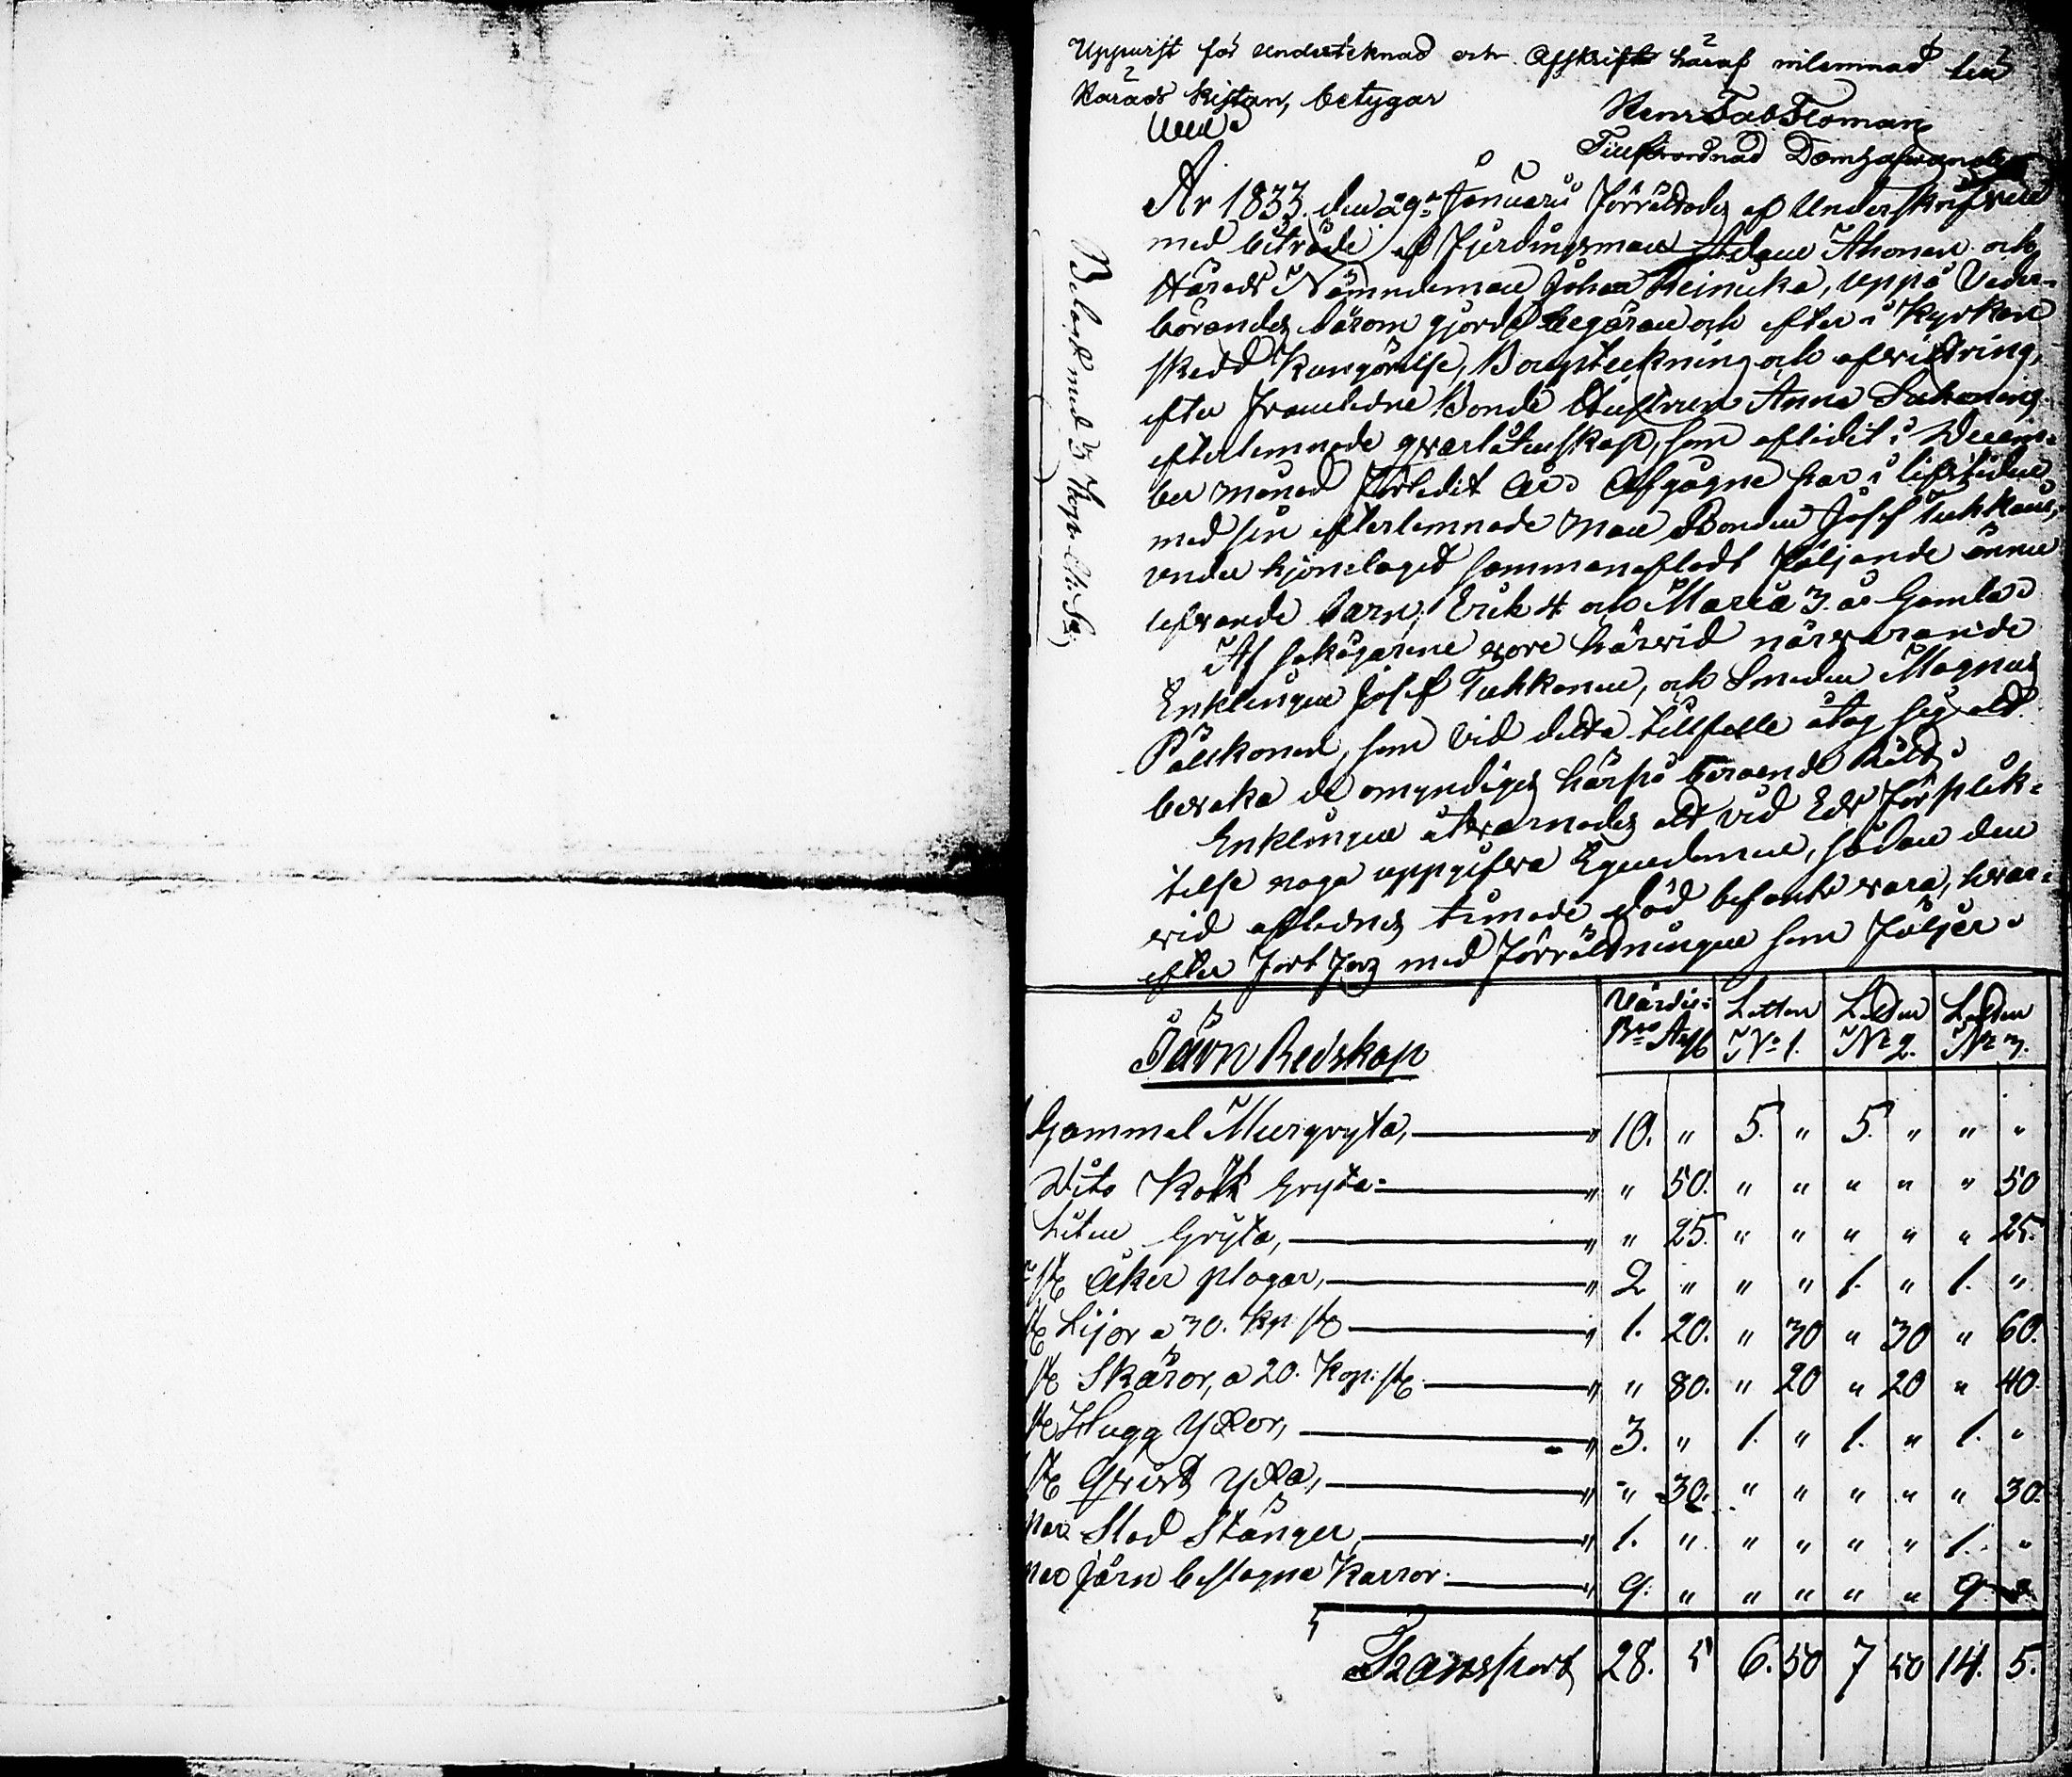 Uppvist för Undertecknad och Afskrift häraf inlemnad till
Härads Kistan, betygar
Henr Fab Floman
Tillförordnad Domhafvande
År 1833. den 29:de Januarii förrättades af Underskrifven
med biträde af Fjerdingsman Adam Ihonen och
Härads Nämndeman Johan Reinicka, uppå Veder-
börandes därom gjorda begäran och efter i Kyrkan
skedd Kungörelse, Bouptekning och afvittring,
efter framledne Bonde Hustrun Anna
efterlemnade qvarlåtenskap, som aflidit i Decem-
ber månad förledit år. Afgågne har i lifstiden
med sin efterlemnade man Bonden Josef Tukkain,
under hjonelaget sammanafladt följande ännu
lefvande barn; Erik 4 och Maria 3. år Gamla.
Af sakägarene voro härvid närvarande
Enklingen Josef Tukkonen, och Smeden Magnus
Pälikonen, som vid detta tillfälle åtog sig att
bevaka de omyndiges härpå beroende Rätt.
Enklingen åtvarnades att vid Eds förplik-
telse noga uppgifva Egendomen, sådan den
vid aflednes timade död befants vara, hvar-
efter fortfors med förrättningen som följer.
Belagd med 3 Kop. Ch: S:
Järn Redskap
Värdie: B:co Ass | Lotten N:o 1. | Lotten N:o 2. | Lotten N:o 3.
Gammal Murgryta, " 10. " 5. " 5. " " "
Dito Kok Gryta " " 50. " " " " " 50
Liten Gryta, " " 25. " " " " " 25.
st Åker plogar, " 2 " " " 1. " 1. "
st Lijor a 30. Kp st " 1. 20. " 30 " 30 " 60.
st Skäror, a 20. Kop: st " " 80. " 20 " 20 " 40.
st Hugg Yxor, " 3. " 1. " 1. " 1. "
st Qvist Yxa, " " 30. " " " " " 30.
par Slod Stänger, " 1. " " " " " 1. "
par Järn beslagna Kärror " 9. " " " " " 9. "
Transport 28. 5 6. 50 7 50 14. 5.